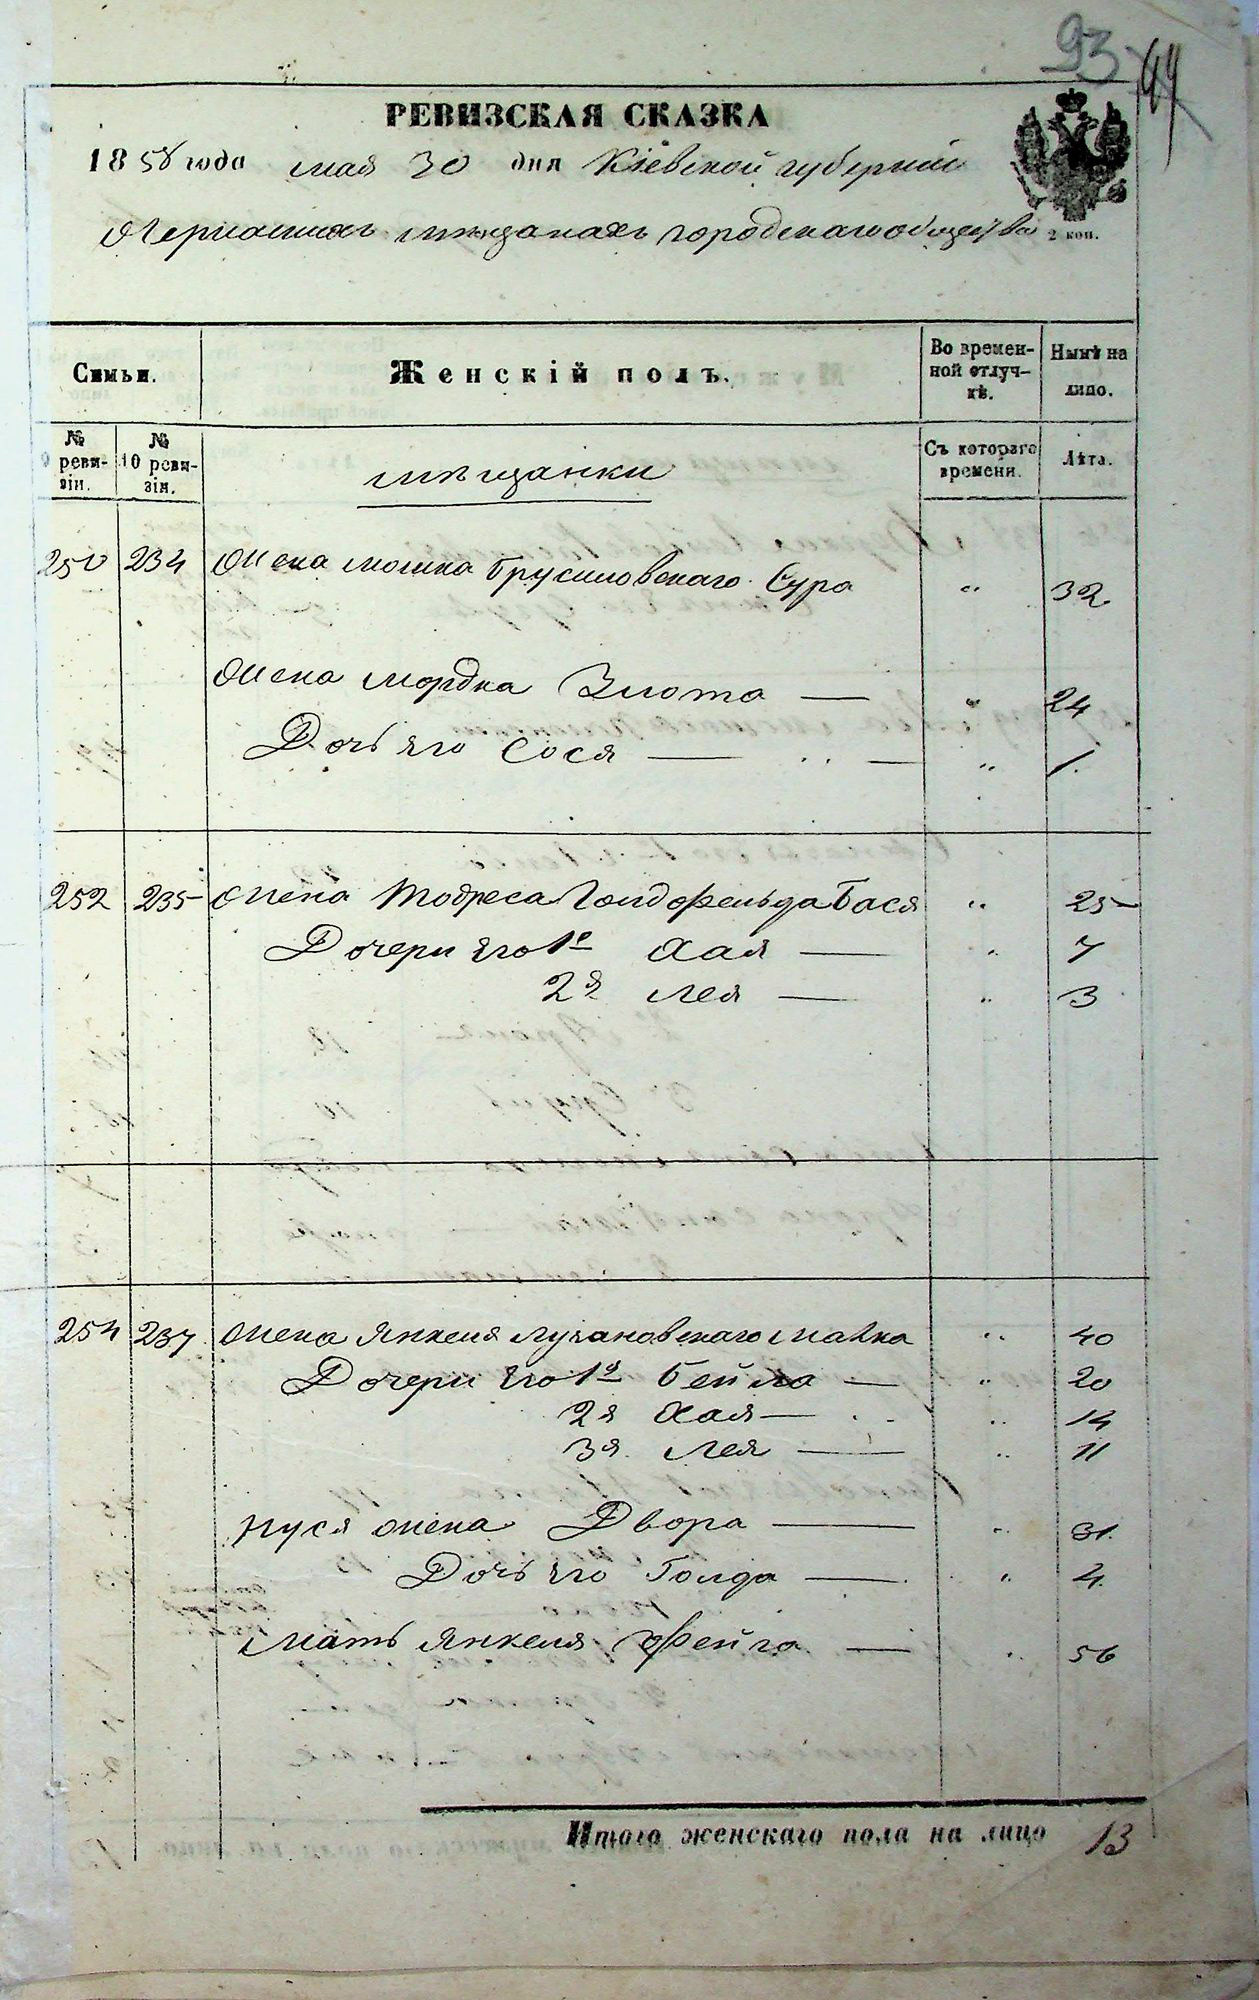 93
44
РЕВИЗСКАЯ СКАЗКА
1858 года мая 30 дня Кіевской губерніи
О Черкаскихъ мѣщанахъ городскаго общества
2 коп.
Семьи. Женскій полъ. Во времен-ной отлуч-кѣ. Нынѣ на лицо.
№ 9 реви-зіи. № 10 реви-зіи. мѣщанки Съ котораго времени. Лѣта.
250 234 Жена Мошка Брусиловскаго Сура " 32
Жена Мордка Злота — " 24
Дочь его Сося — " 1.
252 235 Жена Тодреса Голдофельда Бася " 25
Дочери его 1я Хая — " 7
2я Лея — " 3
254 237 Жена Янкеля Лугановскаго Малка " 40
Дочери его 1я Бейла — " 20
2я Хая — " 14
3я Лея — " 11
Нуся жена Двора — " 31.
Дочь его Голда — " 4.
Мать Янкеля Фейга — " 56
Итого женскаго пола на лицо 13